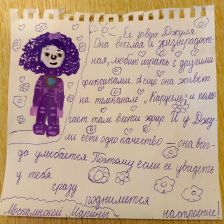 Её зовут Джуля
Она весёлая и жизнерадост-
ная, любит играть с другими
фиксиками. А ещё она живёт
на телеканале „Карусель" и помо-
гает там вести эфир. И у Джу-
ли есть одно качество - она всег-
да улыбается. Поэтому если её увидеть
у тебя
сразу
поднимется
настроение
Марины